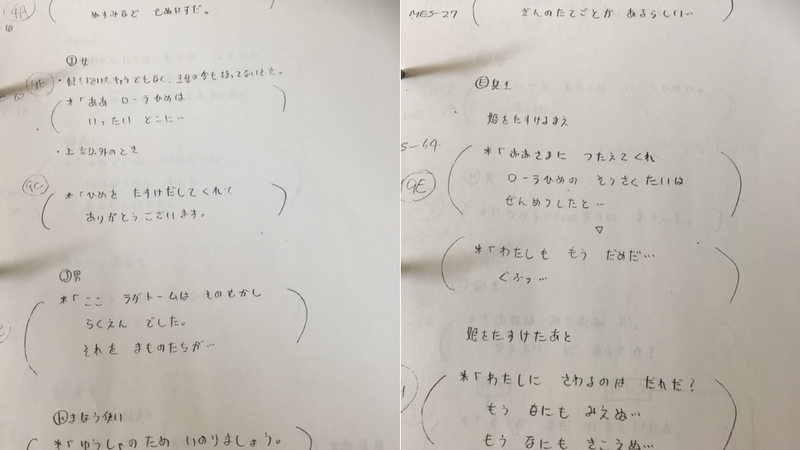 ぬすみなど せぬはずだ。
Ⓘ女
・姫を抱いたわけでもなく、王女の命も救ってないとき。
*「ああ ローラひめは
いったい どこに…
・上記以外のとき
9C
*「ひめを たすけだしてくれて
ありがとうございます。
Ⓙ男
*「ここ ラダトームは そのむかし
らくえん でした。
それを まものたちが…
まほう使い
*「ゆうしゃのため いのりましょう。
MES-27
ぎんのたてごとが あるらしい…
Ⓔ戦士
姫をたすけるまえ
S-64
9E
*「おおさまに つたえてくれ
ローラひめの そうさくたいは
ぜんめつしたと…
▽
*「わたしも もう だめだ…
ぐふっ…
姫をたすけたあと
*「わたしに さわるのは だれだ?
もう なにも みえぬ…
もう なにも きこえぬ…